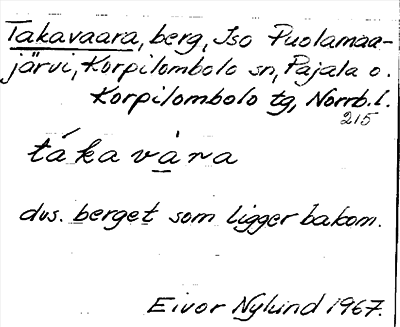 Takavaara, berg, Iso Puolamaa-
järvi, Korpilombolo sn, Pajala o.
Korpilombolo tg, Norrb.l.
215
tákavàra
dvs. berget som ligger bakom.
Eivor Nylund 1967.